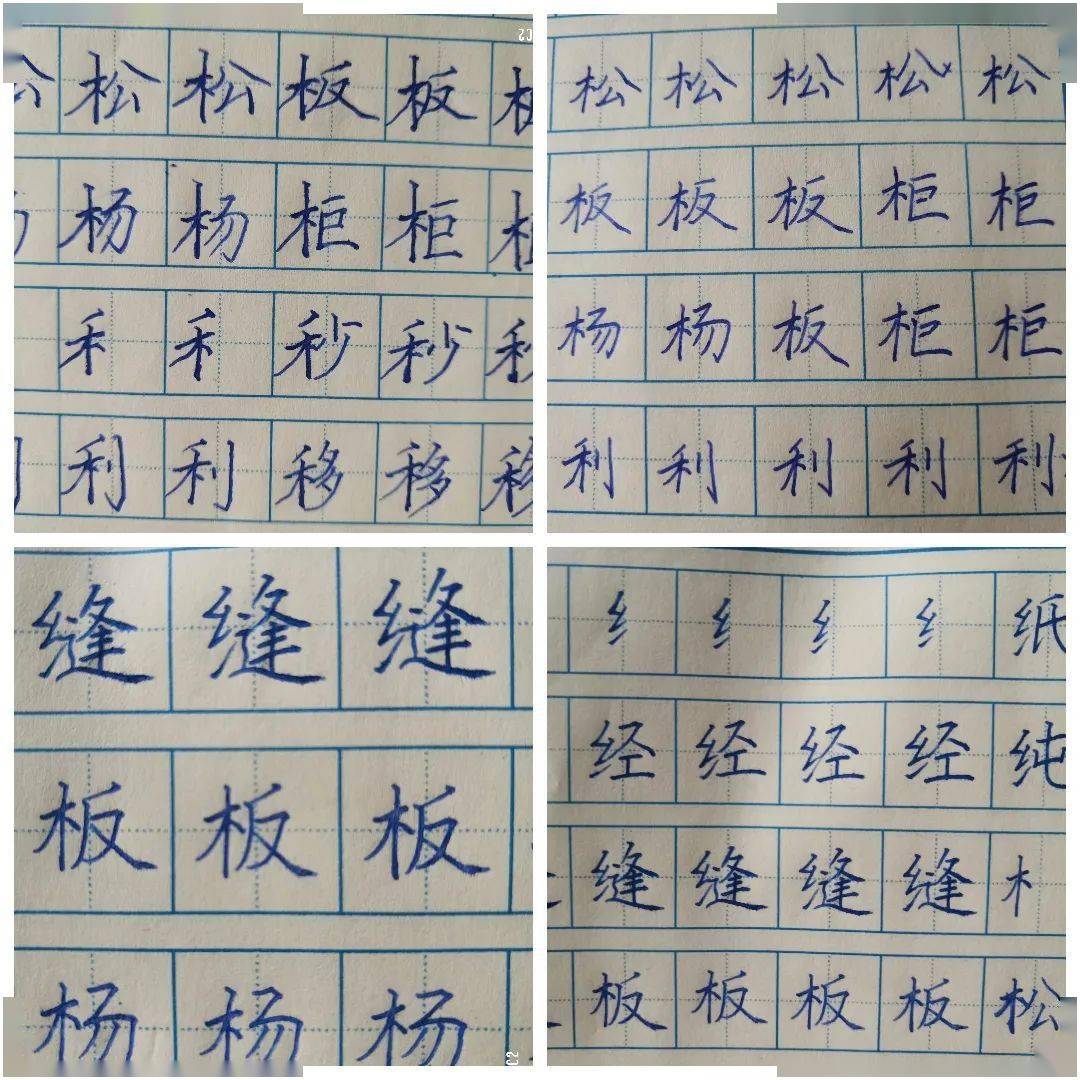 松 松 板 板
杨 杨 柜 柜
禾 禾 秒 秒
利 利 移 移
松 松 松 松 松
板 板 板 柜 柜
杨 杨 板 柜 柜
利 利 利 利 利
缝 缝 缝
板 板 板
杨 杨 杨
纟 纟 纟 纟 纸
经 经 经 经 纯
缝 缝 缝 缝 木
板 板 板 板 松